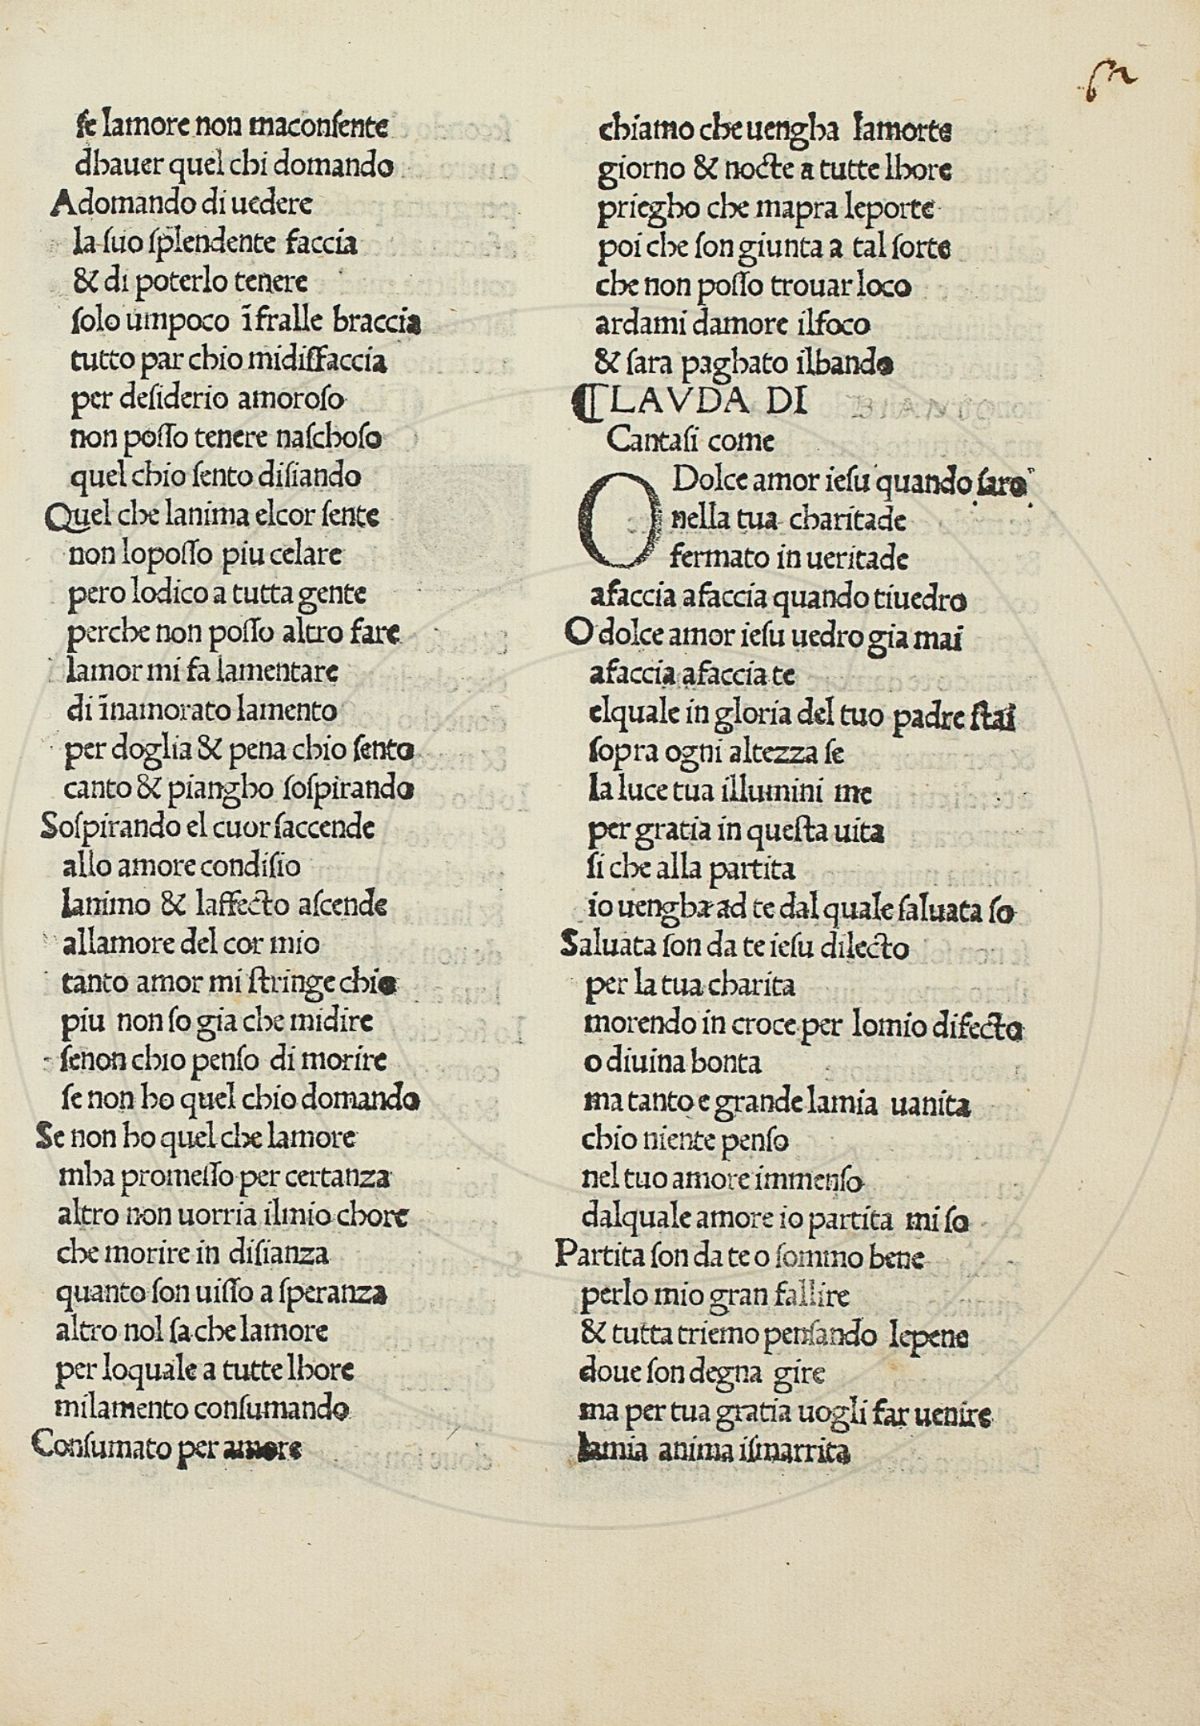 se lamore non maconsente
dhauer quel chi domando
Adomando di uedere
la suo splendente faccia
& di poterlo tenere
solo umpoco ĩfralle braccia
tutto par chio midisfaccia
per desiderio amoroso
non posso tenere naschoso
quel chio sento disiando
Quel che lanima elcor sente
non loposso piu celare
pero lodico a tutta gente
perche non posso altro fare
lamor mi fa lamentare
di ĩnamorato lamento
per doglia & pena chio sento
canto & piangho sospirando
Sospirando el cuor saccende
allo amore condisio
lanimo & laffecto ascende
allamore del cor mio
tanto amor mi stringe chio
piu non so gia che midire
senon chio penso di morire
se non ho quel chio domando
Se non ho quel che lamore
mha promesso per certanza
altro non uorria ilmio chore
che morire in disianza
quanto son uisso a speranza
altro nol sa che lamore
per loquale a tutte lhore
milamento consumando
Consumato per amore
chiamo che uengha lamorte
giorno & nocte a tutte lhore
priegho che mapra leporte
poi che son giunta a tal sorte
che non posso trouar loco
ardami damore ilfoco
& sara paghato ilbando
¶ LAVDA DI
Cantasi come
O Dolce amor iesu quando saro
nella tua charitade
fermato in ueritade
afaccia afaccia quando tiuedro
O dolce amor iesu uedro gia mai
afaccia afaccia te
elquale in gloria del tuo padre stai
sopra ogni altezza se
la luce tua illumini me
per gratia in questa uita
si che alla partita
io uengha ad te dal quale saluata so
Saluata son da te iesu dilecto
per la tua charita
morendo in croce per lomio difecto
o diuina bonta
ma tanto e grande lamia uanita
chio niente penso
nel tuo amore immenso
dalquale amore io partita mi so
Partita son da te o sommo bene
perlo mio gran fallire
& tutta triemo pensando lepene
doue son degna gire
ma per tua gratia uogli far uenire
lamia anima ismarrita